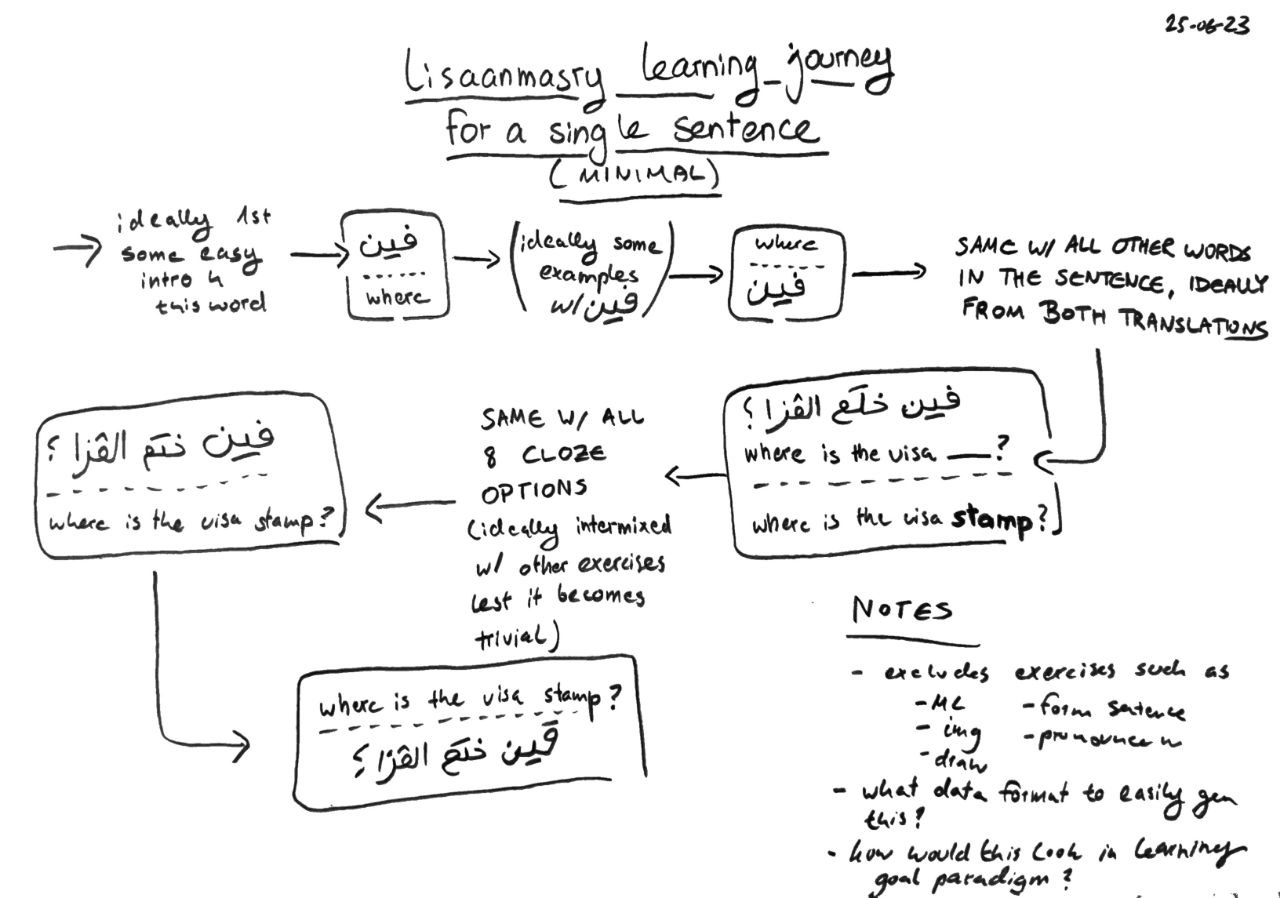 25-06-23
Lisaanmasry learning journey
for a single sentence
(MINIMAL)
ideally 1st
some easy
intro
this word
فين
where
(ideally some
examples
w/ فين)
where
فين
SAME W/ ALL OTHER WORDS
IN THE SENTENCE, IDEALLY
FROM BOTH TRANSLATIONS
فين ختم الڤزا؟
where is the visa __?
where is the visa stamp?
SAME W/ ALL
8 CLOZE
OPTIONS
(ideally intermixed
w/ other exercises
lest it becomes
trivial)
فين ختم الڤزا؟
where is the visa stamp?
where is the visa stamp?
فين ختم الڤزا؟
NOTES
- excludes exercises such as
- MC - form sentence
- img - pronounce
- draw
- what data format to easily gen
this?
- how would this look in learning
goal paradigm?